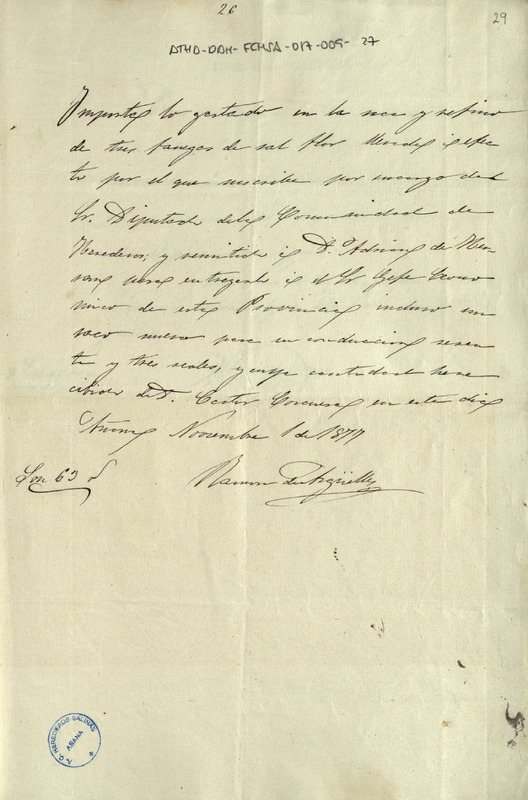 26
29
ATHA-DAH-FCHSA-017-009-27
Importa lo gastado en la
de tres fanegas de sal flor
to por el que suscribe por encargo del
Sr. Diputado dela Comunidad de
Herederos; y remitida á D. Adrian de
para entregarla á el Sr. Gefe Econo
mico de esta Provincia incluso un
saco nuevo para su conduccion sesen
ta y tres reales, y cuya cantidad he re
cibido de D. Castor Corcuera en este dia
Añana Noviembre 1 de 1877
Son 63 r
Ramon
HEREDEROS SALINAS
AÑANA